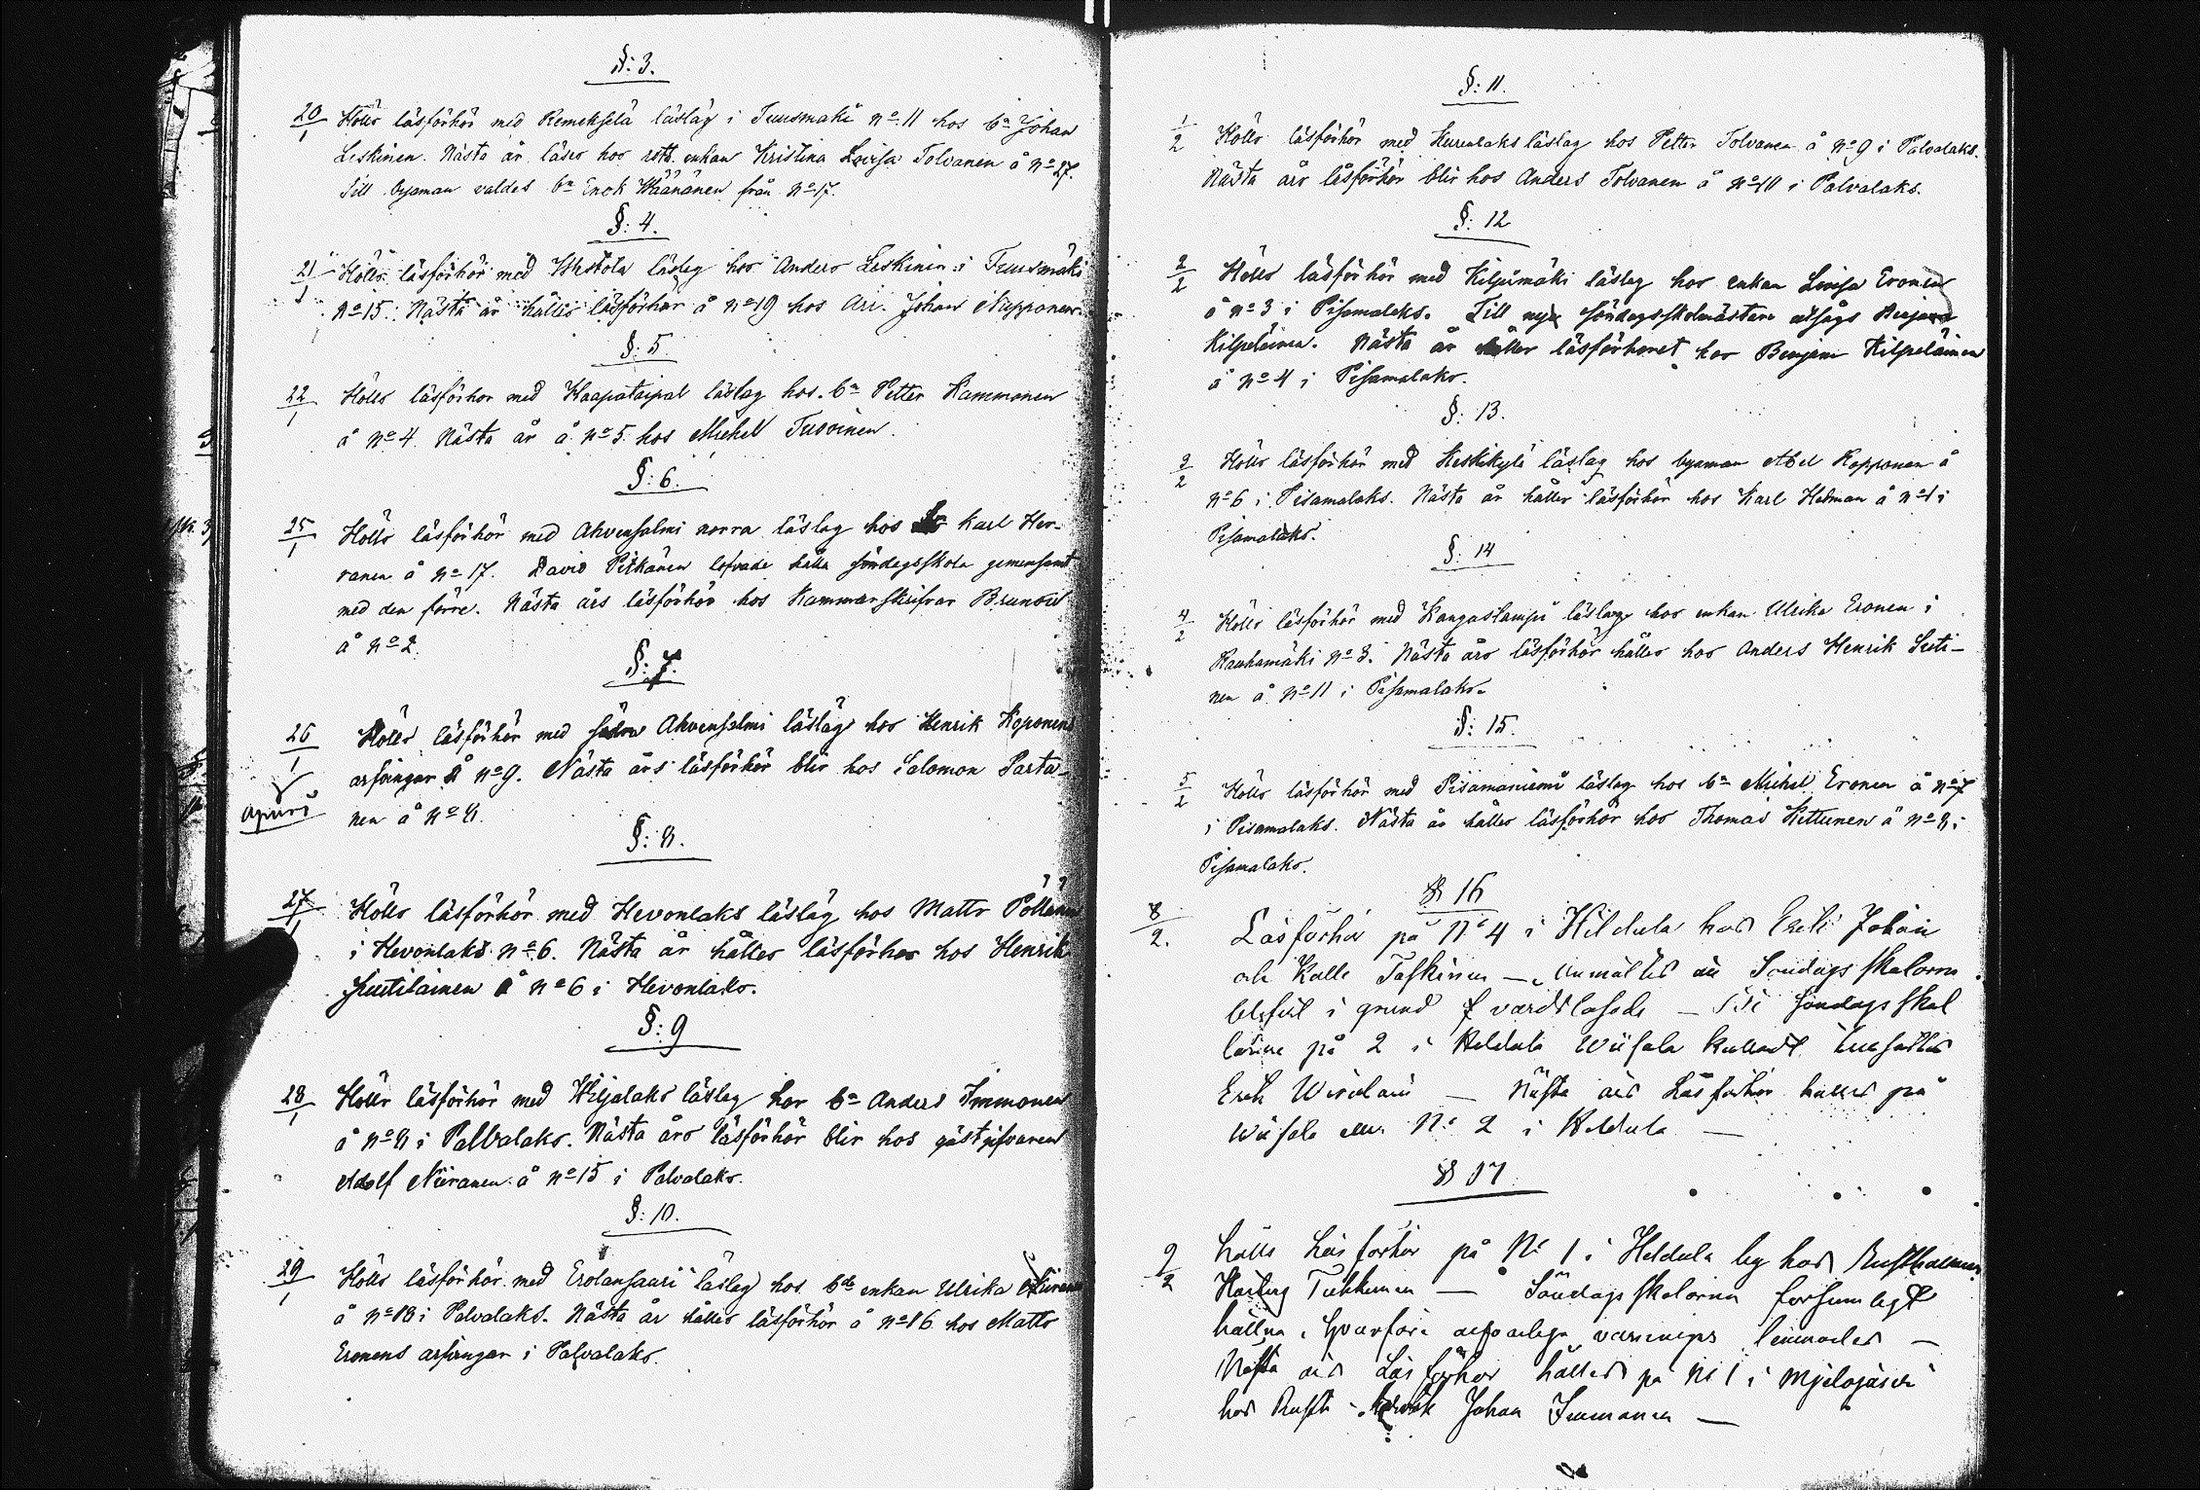 §: 3.
20/1 Hölls läsförhör med Remekselä läslag i Tuusmäki no. 11 hos bn Johan
Leskinen. Nästa år läses hos rott. enkan Kristina Lovisa Tolvanen å no 27.
Till byaman valdes bn Enok Väänänen från no 17.
§: 4.
21/1 Hölls läsförhör med läslag hos Anders Leskinen i Tuusmäki
no 15. Nästa år hålles läsförhör å no 19 hos Ari. Johan Nupponen
§: 5
22/1 Hölls läsförhör med Kaapataipal läslag hos bn Petter Kammonen
å no 4. Nästa år å no 5 hos Michel Tuvoinen.
§: 6.
25/1 Hölls läsförhör med Ahvensalmi norra läslag hos Karl Her-
ranen å no 17. David Pitkänen lofvade hålla söndagsskola gemensamt
med den förre. Nästa års läsförhör hos Kammarskrifvar Brunou
å no 2.
§: 7.
26/1 Hölls läsförhör med södra Ahvensalmi läslag hos Henrik Koponens
arfvingar å no 9. Nästa års läsförhör blir hos Salomon Parta-
nen å no 8.
§: 8.
27/1 Hölls läsförhör med Hevonlaks läslag hos Matts Pöllänen
i Hevonlaks no 6. Nästa år hålles läsförhör hos Henrik
Suutilainen å no 6 i Hevonlaks.
§: 9
28/1 Hölls läsförhör med Viljalaks läslag hos bn Anders Immonen
å no 8 i Palvalaks. Nästa års läsförhör blir hos gästgifvaren
Adolf Niiranen å no 15 i Palvalaks.
§: 10.
29/1 Hölls läsförhör med Erolansaari läslag hos bde enkan Ulrika Niiranen
å no 18 i Palvalaks. Nästa år hålles läsförhör å no 16 hos Matts
Eronens arfvingar i Palvalaks.
§: 11.
1/2 Hölls läsförhör med läslag hos Petter Tolvanen å no 9 i Palvalaks.
Nästa års läsförhör blir hos Anders Tolvanen å no 10 i Palvalaks.
§: 12
2/2 Hölls läsförhör med Kiljumäki läslag hos enkan Lovisa Eronen
å no 3 i Pisamalaks. Till ny söndagsskolmästare utsågs Benjam
Kilpeläinen. Nästa år håller läsförhöret hos Benjam Kilpeläinen
å no 4 i Pisamalaks.
§: 13.
3/2 Hölls läsförhör med Keskikylä läslag hos byaman Abel Kopponen å
no 6 i Pisamalaks. Nästa år hålles läsförhör hos Karl Hedman å no 1 i
Pisamalaks.
§: 14
4/2 Hölls läsförhör med Kangaslampi läslag hos enkan Ulrika Eronen i
Rauhamäki no 3. Nästa års läsförhör hålles hos Anders Henrik Suti-
nen å no 11 i Pisamalaks.
§: 15.
5/2 Hölls läsförhör med Pisamaniemi läslag hos bn Michel Eronen å no 7
i Pisamalaks. Nästa år hålles läsförhör hos Thomas Kettunen å no 8 i
Pisamalaks.
§ 16
8/2. Läsförhör på No 4 i Hildula hos Erik Johan
och Kalle Taskinen — anmältes att Söndags skolorna
blifvit i grund vårdslösade — söndagsskol
på 2 i Heldula
Erik — Nästa års Läsförhör hålles på
No 2 i Heldula —
§ 17.
9/2 hölls Läsförhör på No 1 i Heldula by hos
Tiekkinen — Söndagsskolorna försumligt
hållna, hvarföre varningar lemnades —
Nästa års Läsförhör hålles på No 1 i
hos Johan Immonen —